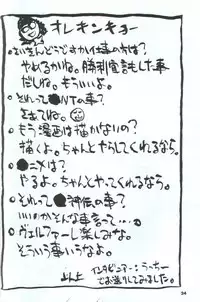 オレキンキョー
・さいきんどうですか仕事の方は?
やめるかね。勝利宣言した事
だしね。もういいよ。
・それって●NTの事?
さあてね。
・もう漫画は描かないの?
描くよ。ちゃんとやらしてくれるなら。
・●ニメは?
やるよ。ちゃんとやってくれるなら。
・それって●神伝の事?
いいのかそんな事言って…
・ヴェルファーレ楽しみな。
そういう事いうなよ。
以上
インタビュアー:うっちー
でお送りしてみました。